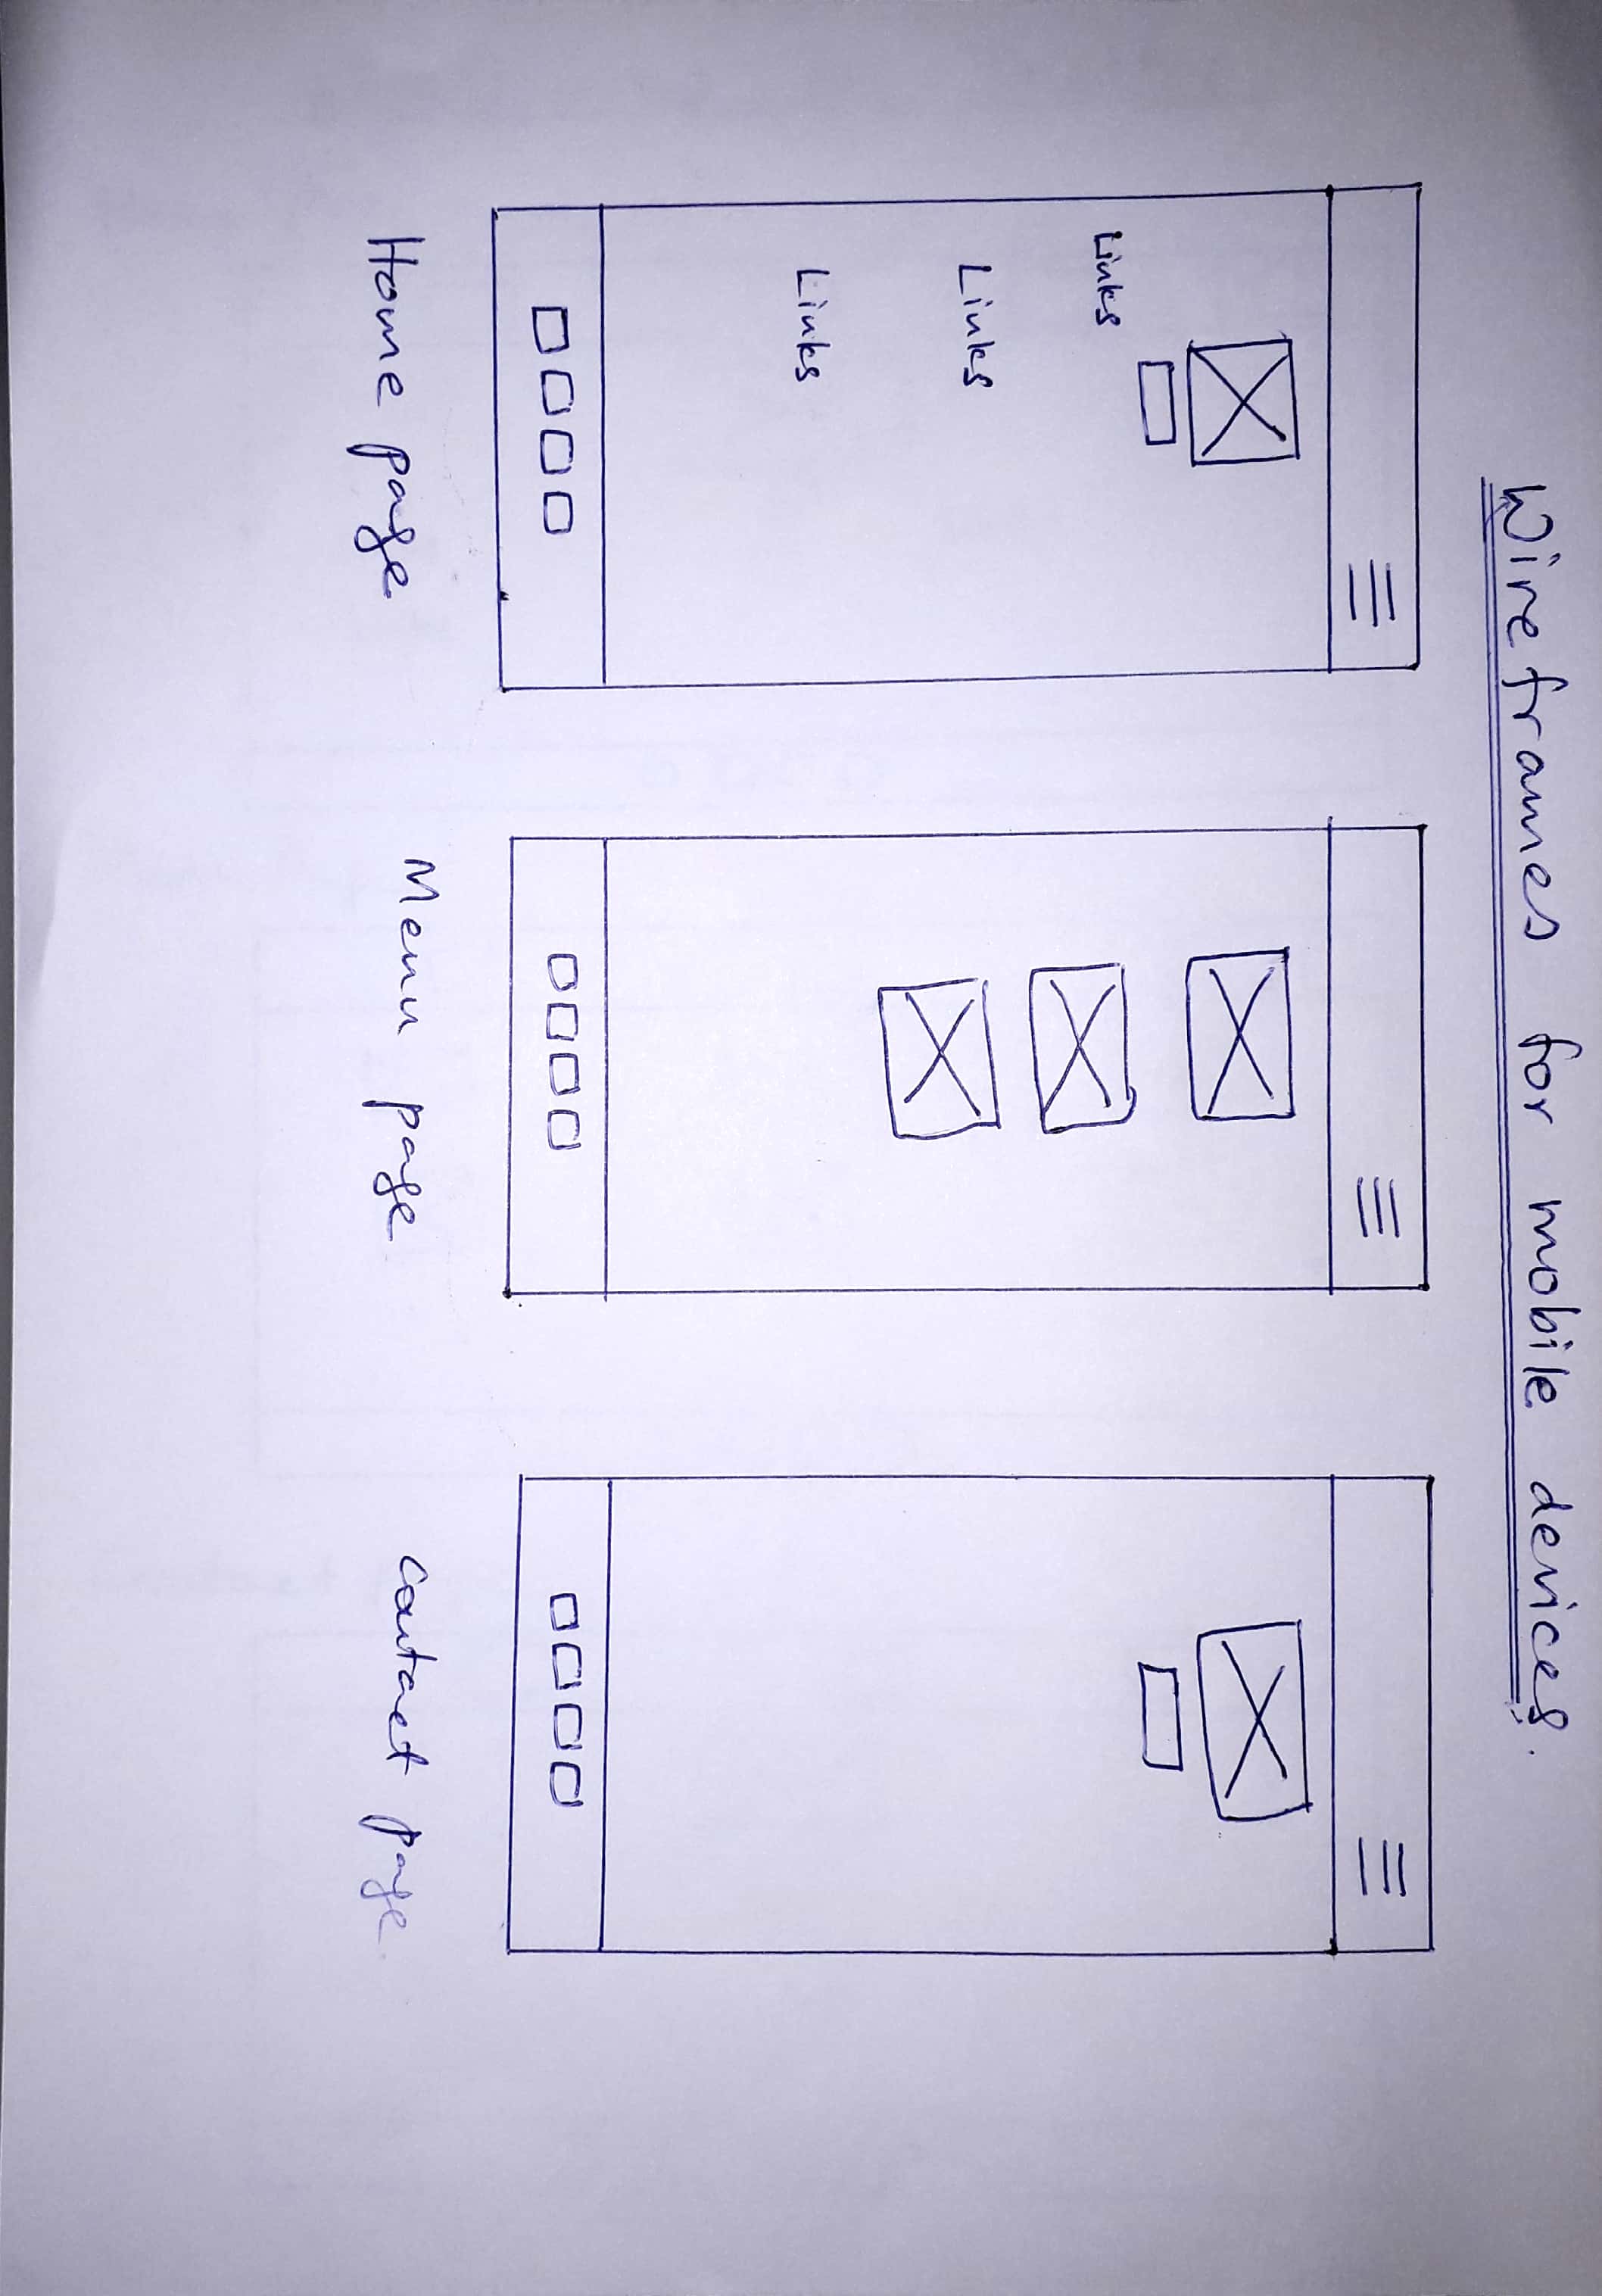 Wireframes for mobile devices.
Links
Links
Links
Home page
Menu page
Contact page.